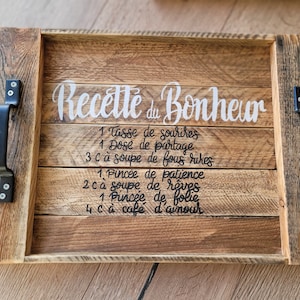 Recette du Bonheur
1 Tasse de sourires
1 Dose de partage
3 c à soupe de fous rires
1 Pincée de patience
2 c à soupe de rêves
1 Pincée de folie
4 c à café d'amour